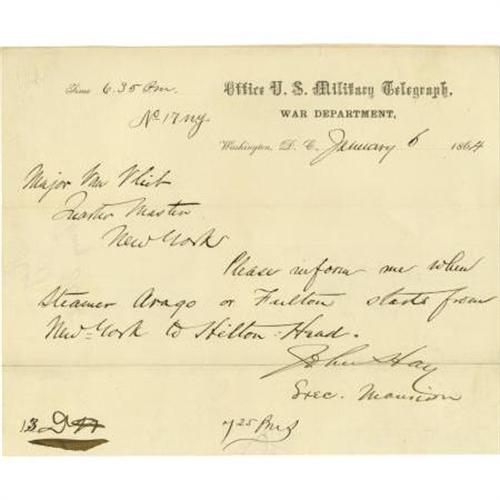 Time 6.35 Pm.
Office U. S. Military Telegraph,
No. 17 ny
WAR DEPARTMENT,
Washington, D. C. January 6 1864
Major Van Vliet
Quarter Master
New York
Please inform me when
Steamer Arago or Fulton starts from
New=York to Hilton=Head.
John Hay
Exec. Mansion
13
725 Pm